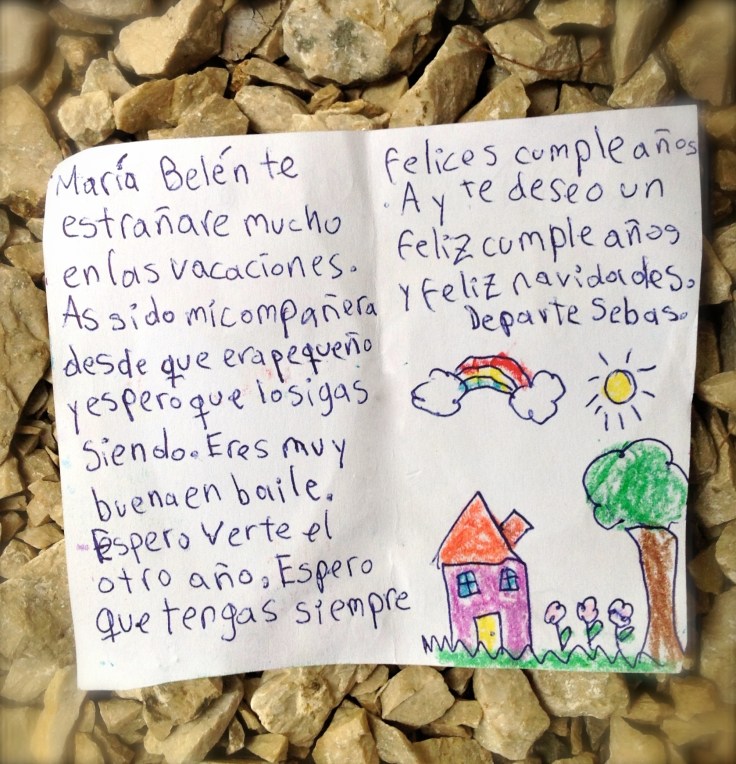 María Belén te
estrañare mucho
en las vacaciones.
As sido mi compañera
desde que era pequeño
y espero que lo sigas
siendo. Eres muy
buena en baile.
Espero verte el
otro año. Espero
que tengas siempre
felices cumpleaños
. A y te deseo un
feliz cumpleaños
y feliz navidades.
Departe Sebas.